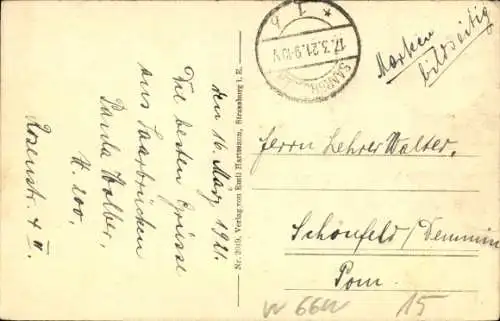 * 1 b
17.3.21.9-10V
SAARBRÜCKEN
Marken
bildseitig
den 16. März 1921.
Viel besten Grüsse
aus Saarbrücken
Panda Wolber,
H. 200,
Rosenstr. 4 II.
Nr. 2019, Verlag von Emil Hartmann, Strassburg i. E.
Herrn Lehrer Walter,
Schönfeld/Demmin
Pom.
W 66W
15